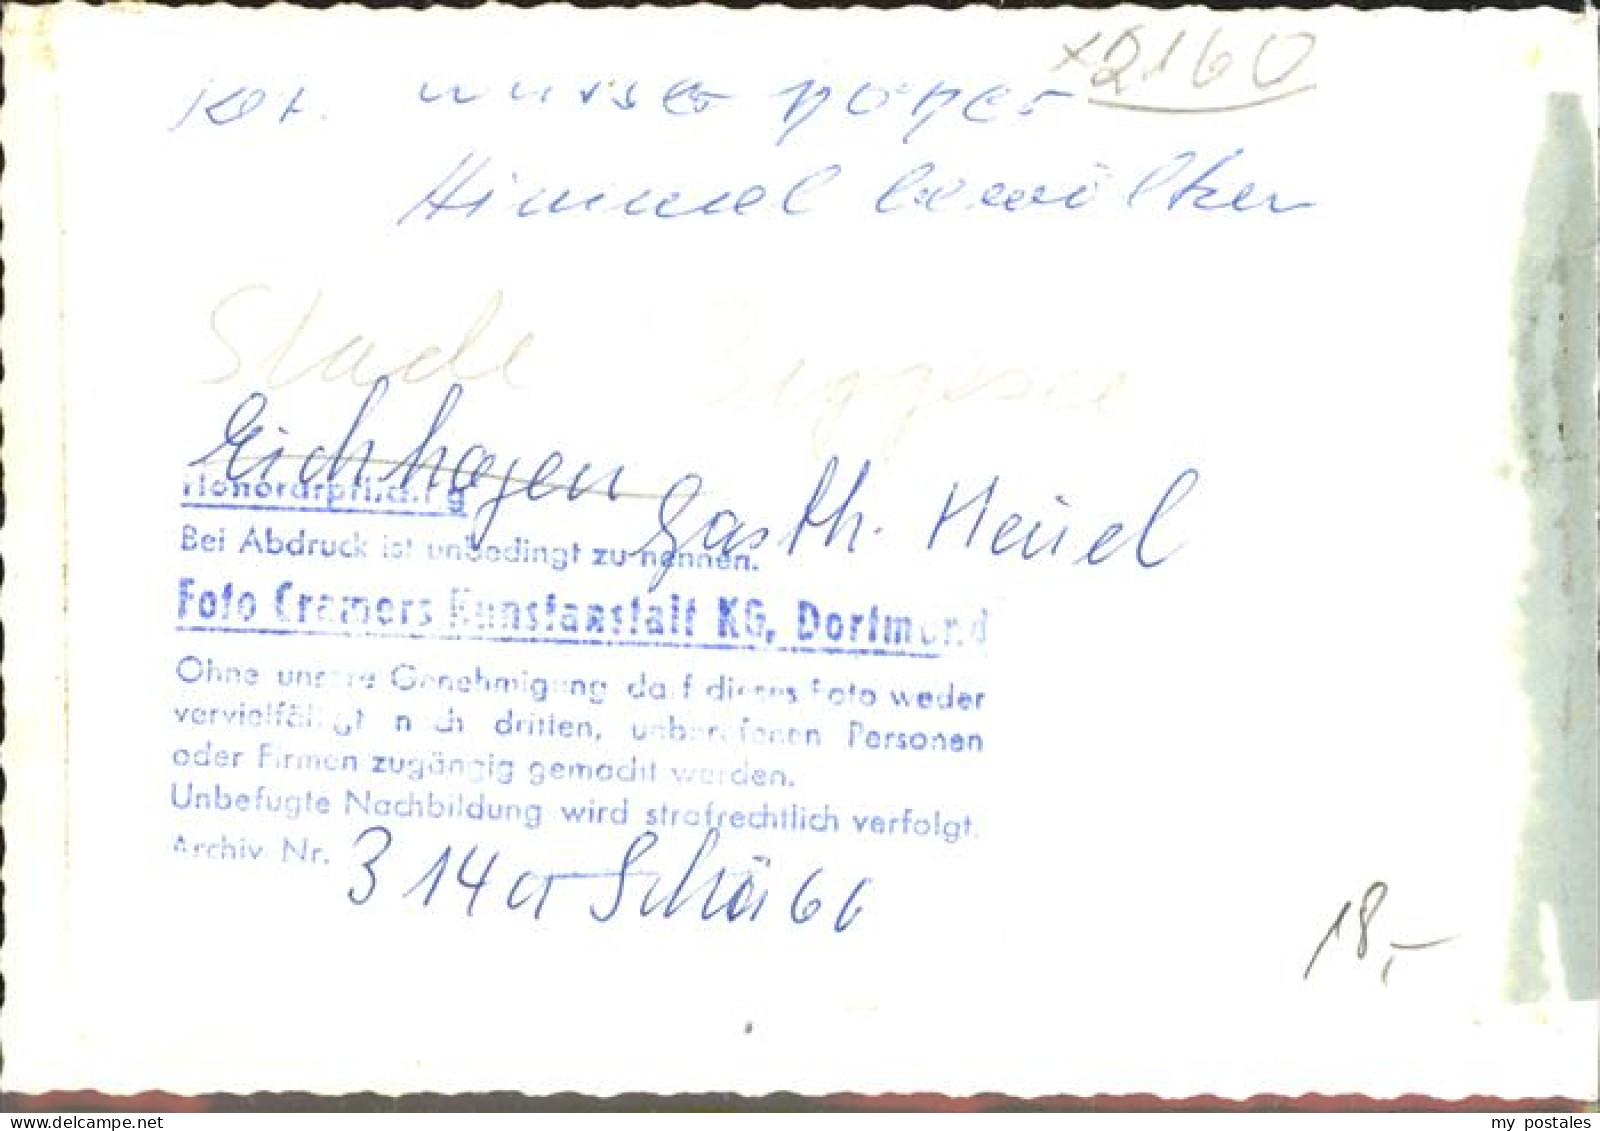 x2160
höher
Himmel bewölken
Stade Biggesee
Eichhagen Gasth. Heuel
Honorarpflichtig
Bei Abdruck ist unbedingt zu nennen.
Foto Cramers Kunstanstalt KG, Dortmund
Ohne unsere Genehmigung darf dieses Foto weder
vervielfältigt noch dritten, unberufenen Personen
oder Firmen zugängig gemacht werden.
Unbefugte Nachbildung wird strafrechtlich verfolgt.
Archiv Nr. 314a Schä 66
18,-
my postales